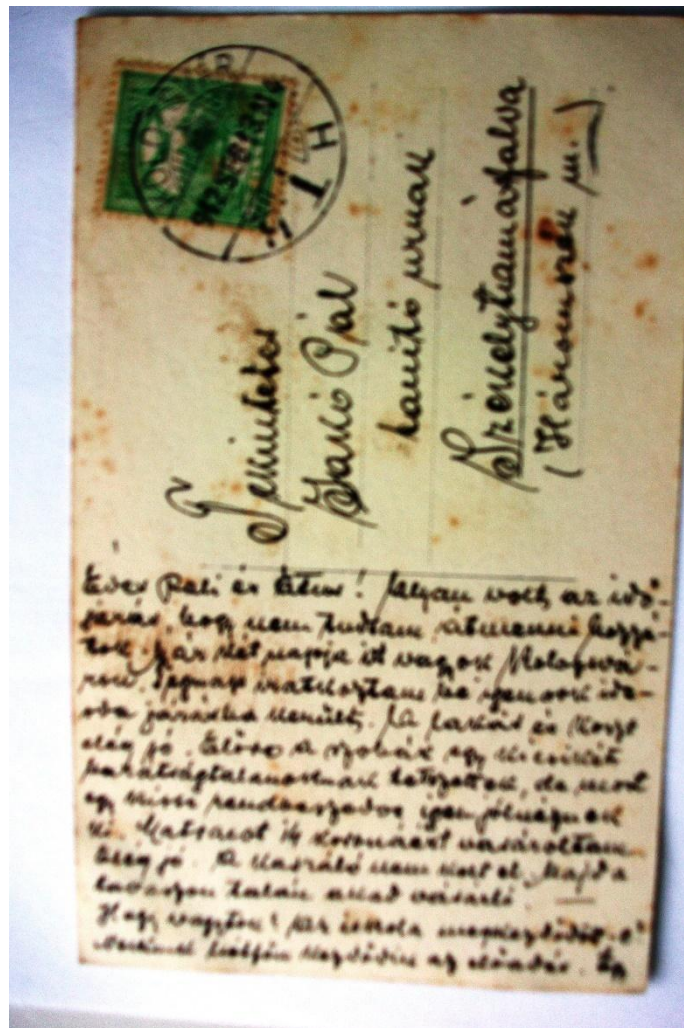 KOLOZSVÁR
912 SZEP
Tekintetes
Jakó Pál
tanító urnak
Székelytamásfalva
(Háromszék m.)
Édes Pali és Étus! Olyan volt az idő-
járás, hogy nem tudtam átmenni hozzá-
tok. Már két napja itt vagyok Kolozsvá-
ron. Tegnap iratkoztam be igen sok ide-
oda járásba került. A lakás és koszt
elég jó. Először a szobák egy kicsikét
barátságtalanoknak tetszettek, de most
egy kissé rendbeszedve igen jól néznek
ki. Kabátot 14 koronáért vásároltam
Elég jó. A kaszáló nem kelt el, majd a
tavaszon talán akad vásárló.
Hogy vagytok? Az iskola megkezdődött-e?
Nekünk hétfőn kezdődik az előadás. Így